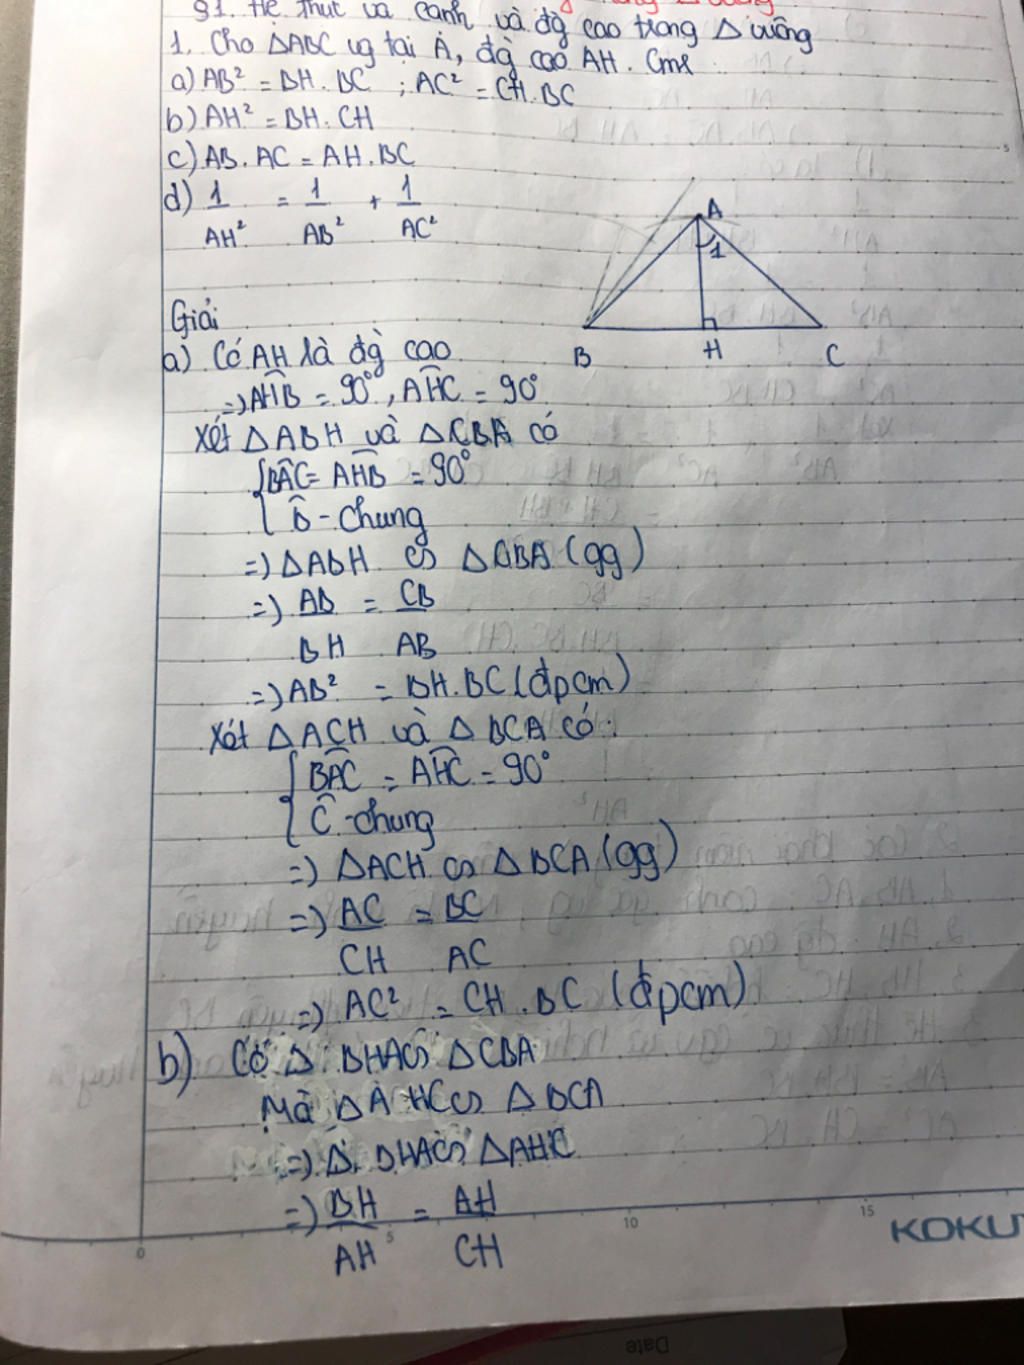 §1. Hệ thức về cạnh và đg cao trong Δ vuông
1. Cho ΔABC vg tại A, đg cao AH. Cmr
a) AB² = BH.BC ; AC² = CH.BC
b) AH² = BH.CH
c) AB.AC = AH.BC
d) 1/AH² = 1/AB² + 1/AC²
A
1
B H C
Giải
a) Có AH là đg cao
=> AHB̂ = 90°, AHĈ = 90°
Xét ΔABH và ΔCBA có
{BÂC = AĤB = 90°
B̂ - chung
=> ΔABH ∽ ΔCBA (gg)
=> AB/BH = CB/AB
=> AB² = BH.BC (đpcm)
Xét ΔACH và ΔBCA có:
{BÂC = AĤC = 90°
Ĉ - chung
=> ΔACH ∽ ΔBCA (gg)
=> AC/CH = BC/AC
=> AC² = CH.BC (đpcm)
b) Có Δ BHA ∽ ΔCBA
Mà ΔAHC ∽ ΔBCA
=> Δ BHA ∽ ΔAHC
=> BH/AH = AH/CH
0 5 10 15
KOKU
Date